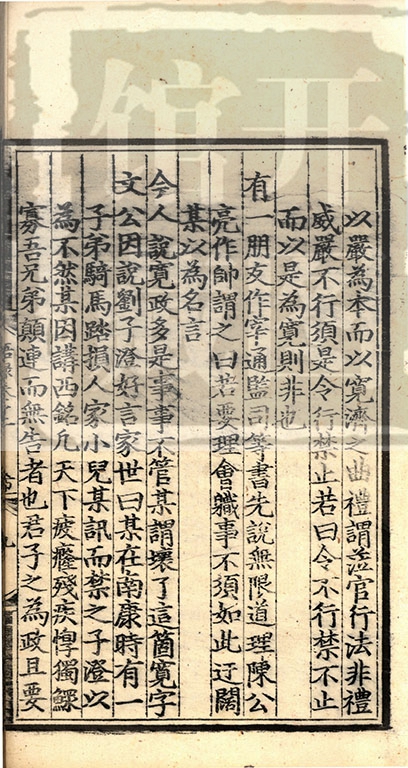 以嚴為本而以寬濟之曲禮謂涖官行法非禮
威嚴不行須是令行禁止若曰令不行禁不止
而以是為寬則非也
有一朋友作宰通監司等書先說無限道理陳公
亮作帥謂之曰若要理會職事不須如此迂闊
某以為名言
今人說寬政多是事事不管某謂壞了這箇寬字
文公因說劉子澄好言家世曰某在南康時有一
子弟騎馬踏損人家小兒某訊而禁之子澄以
為不然某因講西銘凡天下疲癃殘疾惸獨鰥
寡吾兄弟顛連而無告者也君子之為政且要